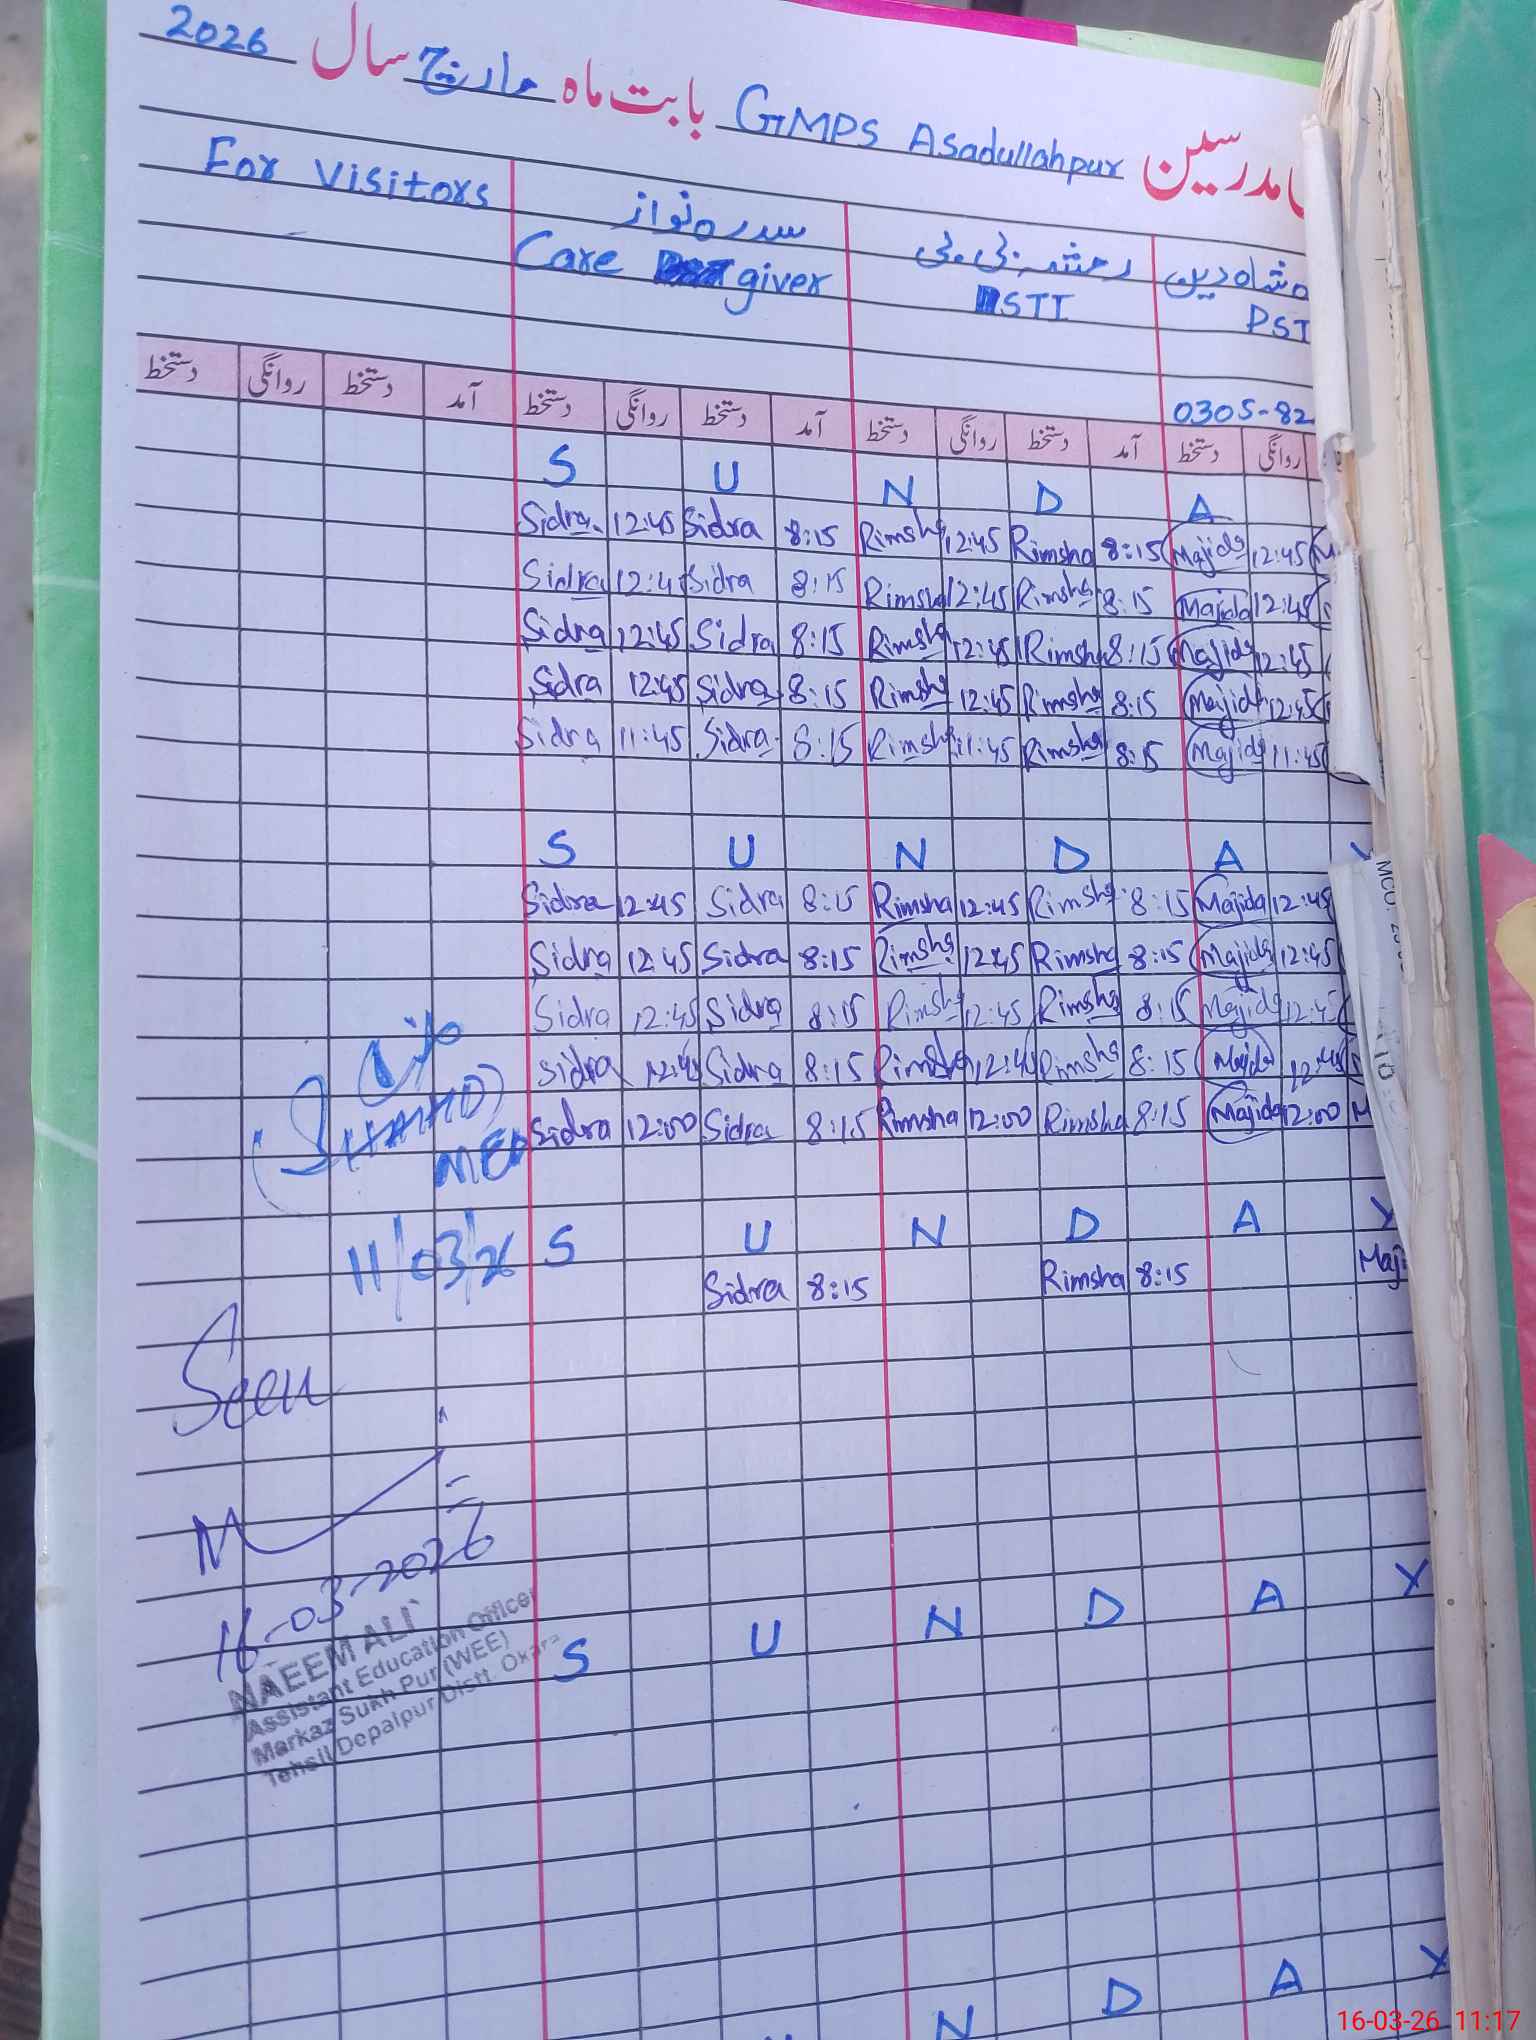 مدرسین GMPS Asadullahpur بابت ماہ مارچ سال 2026
For Visitors
سدرہ نواز
Care giver
رمشہ بی بی
STI
PST
0305-82
دستخط روانگی دستخط آمد دستخط روانگی دستخط آمد دستخط روانگی دستخط آمد دستخط روانگی
S U N D A
Sidra 12:45 Sidra 8:15 Rimsha 12:45 Rimsha 8:15 Majida 12:45
Sidra 12:4 Sidra 8:15 Rimsha 12:45 Rimsha 8:15 Majida 12:45
Sidra 12:45 Sidra 8:15 Rimsha 12:45 Rimsha 8:15 Majida 12:45
Sidra 12:45 Sidra 8:15 Rimsha 12:45 Rimsha 8:15 Majida 12:45
Sidra 11:45 Sidra 8:15 Rimsha 11:45 Rimsha 8:15 Majida 11:45
S U N D A Y
Sidra 12:45 Sidra 8:15 Rimsha 12:45 Rimsha 8:15 Majida 12:45
Sidra 12:45 Sidra 8:15 Rimsha 12:45 Rimsha 8:15 Majida 12:45
Sidra 12:45 Sidra 8:15 Rimsha 12:45 Rimsha 8:15 Majida 12:45
Sidra 12:45 Sidra 8:15 Rimsha 12:45 Rimsha 8:15 Majida 12:45
Sidra 12:00 Sidra 8:15 Rimsha 12:00 Rimsha 8:15 Majida 12:00 M
MEA
11/03/26
S U N D A Y
Sidra 8:15 Rimsha 8:15 Maji
Seen
16-03-2026
NAEEM ALI
Assistant Education Officer
Markaz Sukh Pur (WEE)
Tehsil Depalpur Distt. Okara
S U N D A Y
N D A Y
16-03-26 11:17